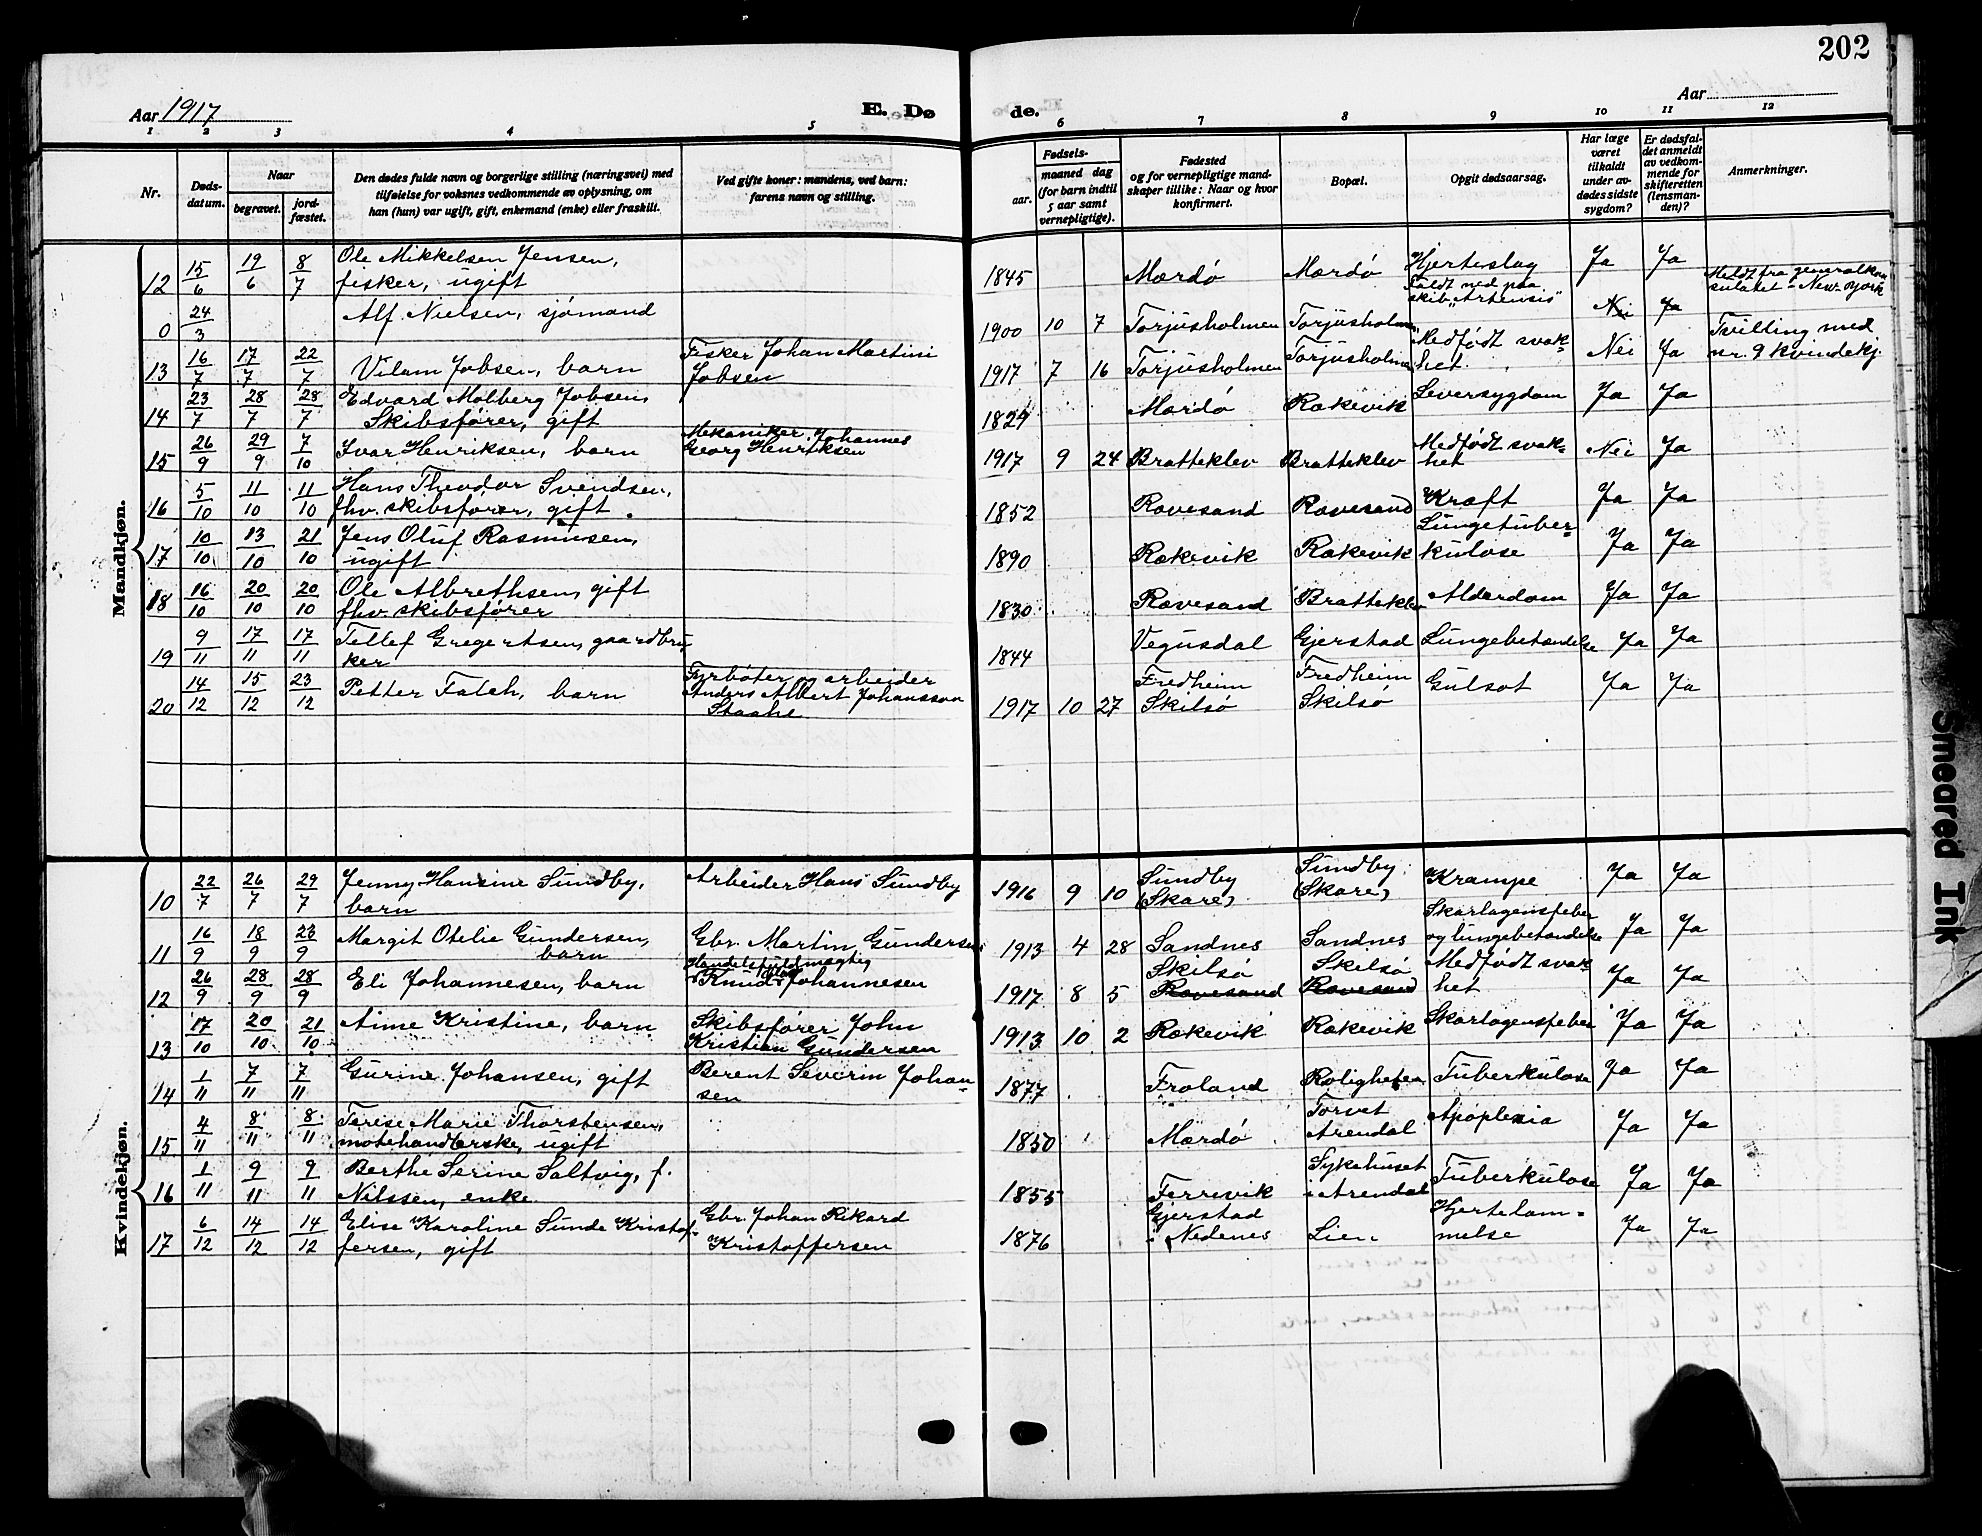 202
Aar 1917
E. Dø
de.
Aar
1 2 3 4 5 6 7 8 9 10 11 12
Nr.
Døds-
datum.
Naar
begravet.
jord-
fæstet.
Den dødes fulde navn og borgerlige stilling (næringsvei) med
tilføielse for voksnes vedkommende av oplysning, om
han (hun) var ugift, gift, enkemand (enke) eller fraskilt.
Ved gifte koner: mandens, ved barn:
farens navn og stilling.
Fødsels-
aar.
maaned dag
(for barn indtil
5 aar samt
vernepligtige).
Fødested
og for vernepligtige mand-
skaper tillike: Naar og hvor
konfirmert.
Bopæl.
Opgit dødsaarsag.
Har læge
været
tilkaldt
under av-
dødes sidste
sygdom?
Er dødsfal-
det anmeldt
av vedkom-
mende for
skifteretten
(lensman-
den)?
Anmerkninger.
Mandkjøn.
12 15/6 19/6 8/7 Ole Mikkelsen Jensen, 1845 Mærdø Mærdø Hjerteslag Ja Ja
fisker, ugift
0 24/3 Alf. Nielsen, sjømand 1900 10 7 Torjusholmen Torjusholmen Faldt ned paa Nei Ja Meldt fra generalkon
skib „Artensis" sulatet i New-York
13 16/7 17/7 22/7 Vilam Jobsen, barn Fisker Johan Martini 1917 7 16 Torjusholmen Torjusholmen Medfødt svak- Nei Ja Tvilling med
Jobsen het. nr. 9 kvindekj.
14 23/7 28/7 28/7 Edvard Molberg Jobsen, 1829 Mærdø Rækevik Leversygdom Ja Ja
Skibsfører, gift
15 26/9 29/9 7/10 Ivar Henriksen, barn Mekaniker Johannes 1917 9 24 Bratteklev Bratteklev Medfødt svak- Nei Ja
Georg Henriksen het
16 5/10 11/10 11/10 Hans Theodor Svendsen, 1852 Rævesand Rævesand Kræft Ja Ja
fhv. skibsfører, gift.
17 10/10 13/10 21/10 Jens Oluf Rasmussen, 1890 Rækevik Rækevik Lungetuber- Ja Ja
ugift kulose
18 16/10 20/10 20/10 Ole Albrethsen, gift 1830 Rævesand Bratteklev Alderdom Ja Ja
fhv. skibsfører
19 9/11 17/11 17/11 Tellef Gregertsen, gaardbru 1844 Vegusdal Gjerstad Lungebetændelse Ja Ja
ker
20 14/12 15/12 23/12 Petter Falch, barn Fyrbøter og arbeider 1917 10 27 Fredheim Fredheim Gulsot Ja Ja
Anders Albert Johansson Skilsø Skilsø
Kvindekjøn.
10 22/7 26/7 29/7 Jenny Hansine Sundby, Arbeider Hans Sundby 1916 9 10 Sundby Sundby Krampe Ja Ja
barn (Skare) (Skare)
11 16/9 18/9 23/9 Margit Otelie Gundersen, Gbr. Martin Gundersen 1913 4 28 Sandnes Sandnes Skarlagensfeber Ja Ja
barn og lungebetændelse
12 26/9 28/9 28/9 Eli Johannesen, barn Handelsfuldmægtig 1917 8 5 Skilsø Skilsø Medfødt svak- Ja Ja
Knud Johannesen Rævesand Rævesand het
13 17/10 20/10 21/10 Aime Kristine, barn Skibsfører John 1913 10 2 Rækevik Rækevik Skarlagensfeber Ja Ja
Kristian Gundersen
14 1/11 7/11 7/11 Gurine Johansen, gift Berent Severin Johan- 1877 Froland Roligheten Tuberkulose Ja Ja
sen
15 4/11 8/11 8/11 Terese Marie Thorstensen, 1850 Mærdø Torvet Apoplexia Ja Ja
motehandlerske, ugift Arendal
16 1/11 9/11 9/11 Berthe Serine Saltvig, f. 1855 Færrevik Sykehuset Tuberkulose Ja Ja
Nilssen, enke i Arendal
17 6/12 14/12 14/12 Elise Karoline Sunde Kristof- Gbr. Johan Rikard 1876 Gjerstad Lien Hjertelam- Ja Ja
fersen, gift Kristoffersen i Nedenes melse
Smeared Ink